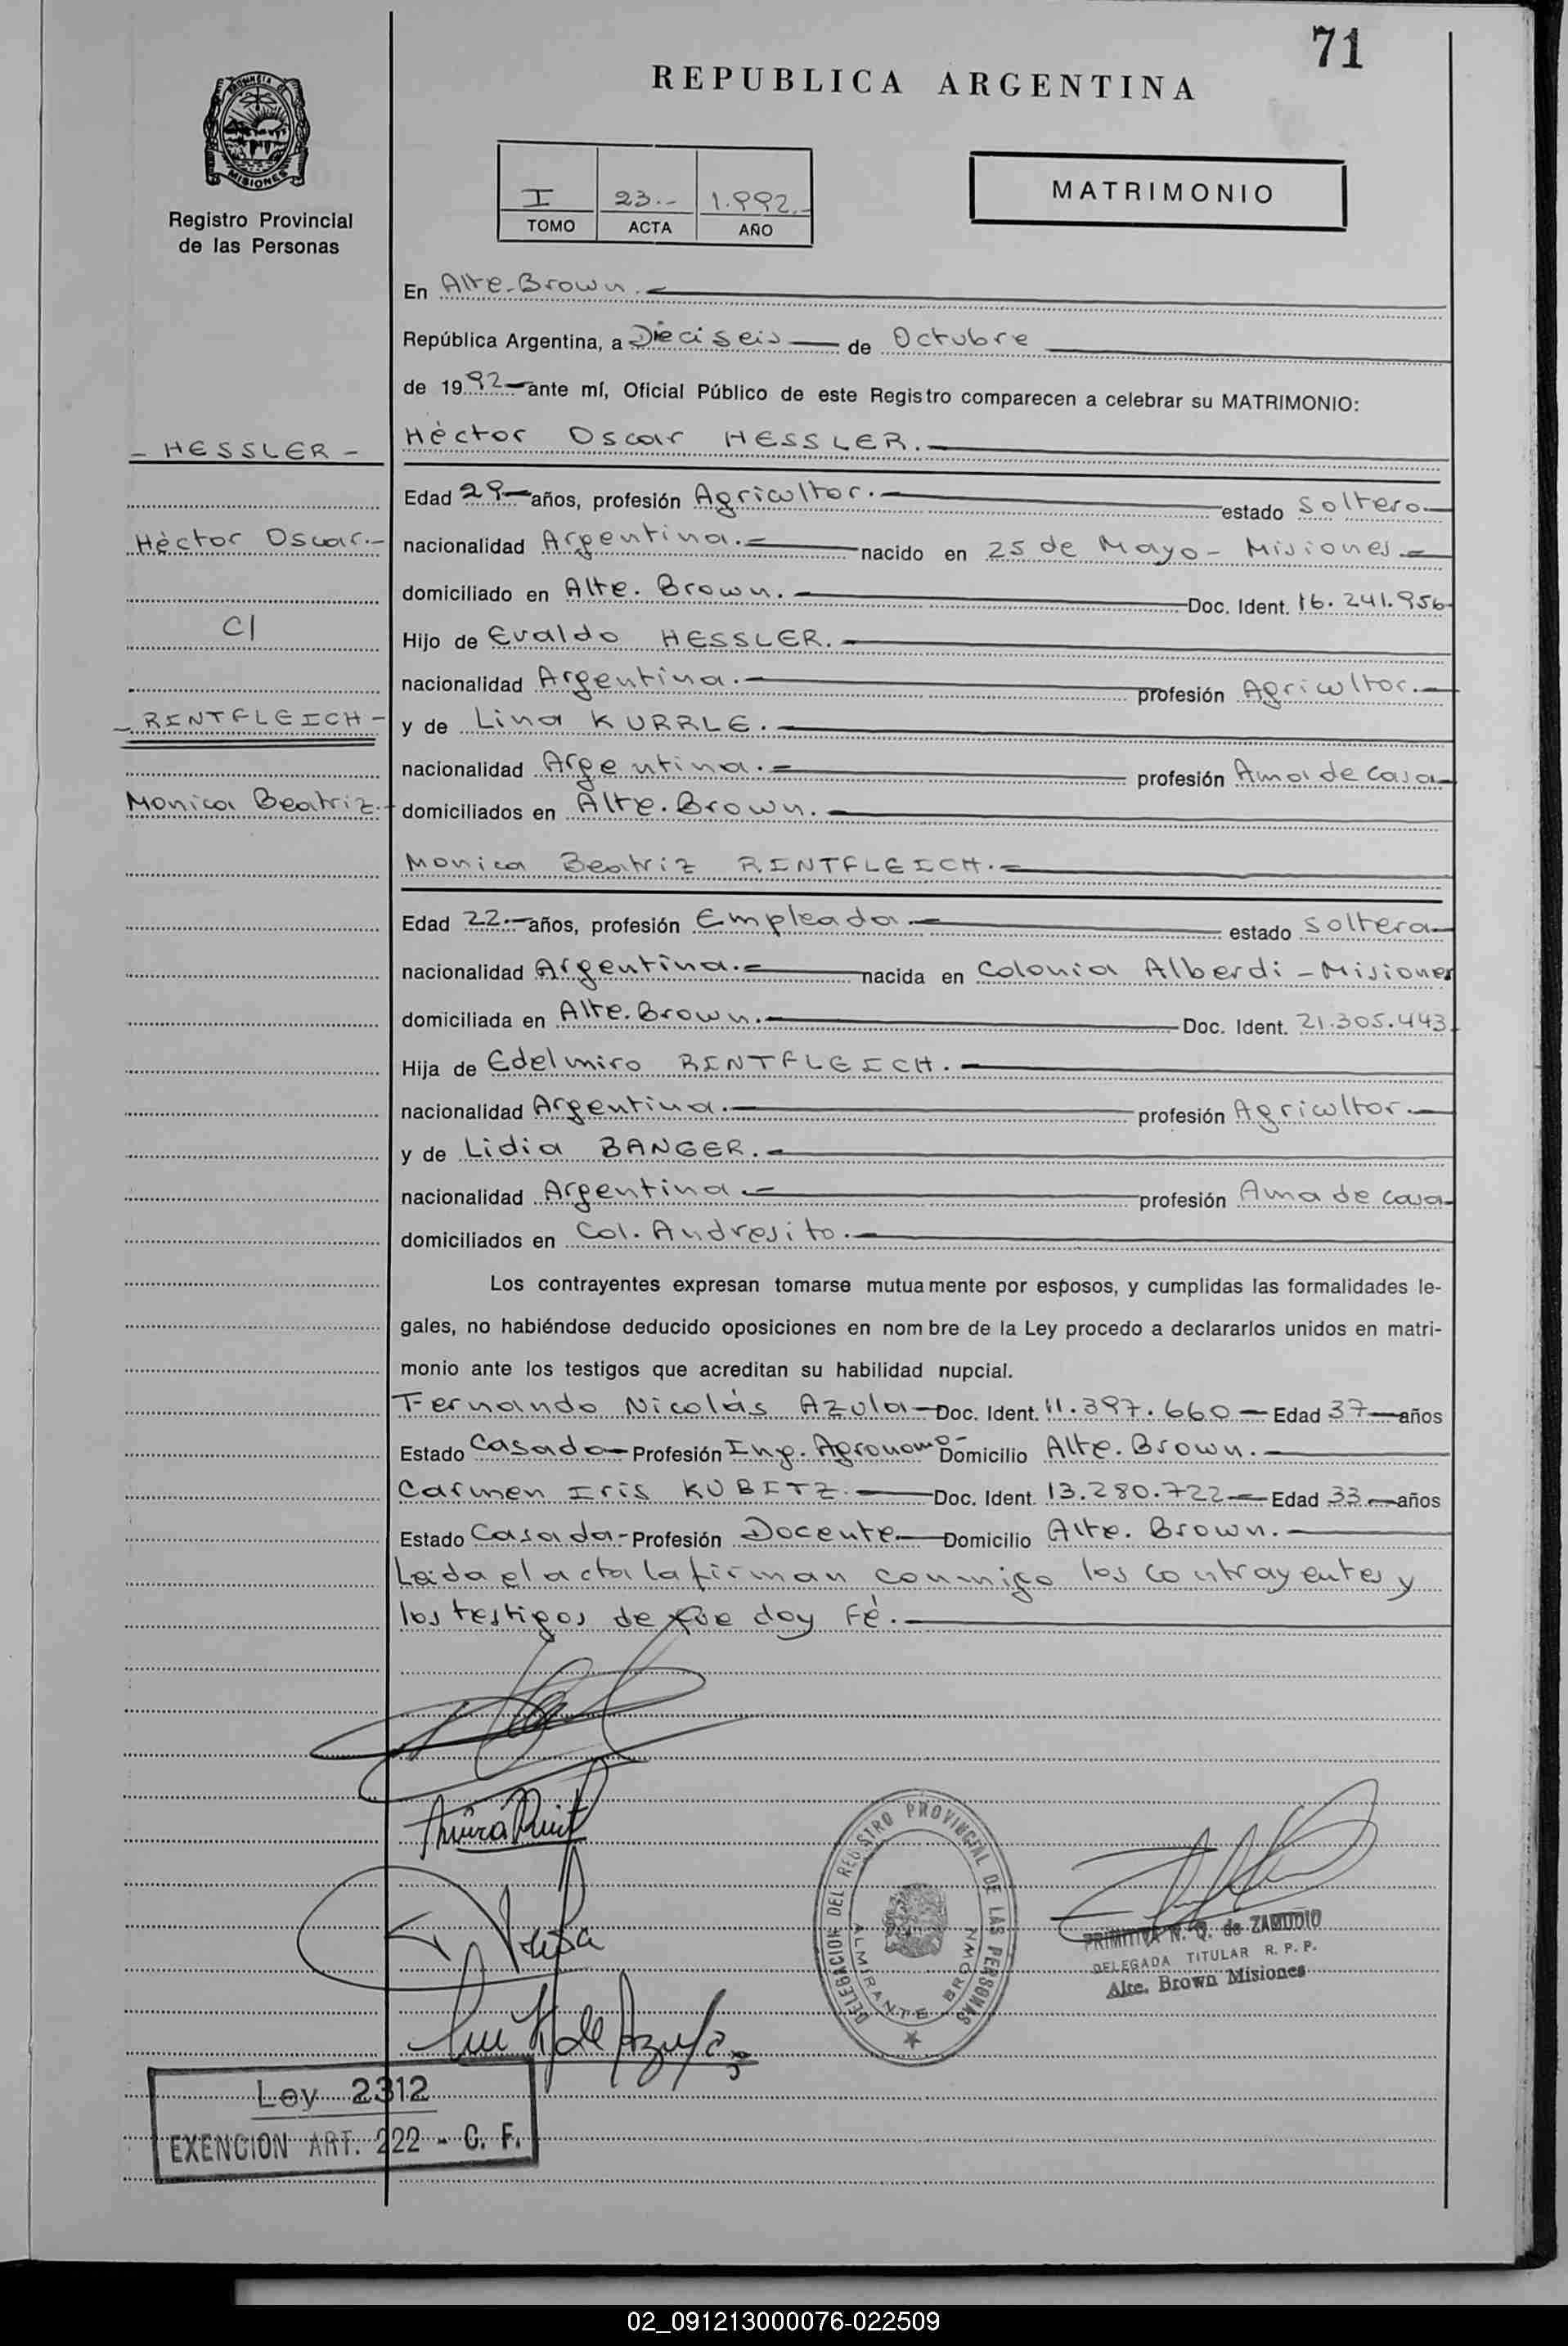 71
REPUBLICA ARGENTINA
MISIONES
Registro Provincial
de las Personas
I 23.- 1.992.-
TOMO ACTA AÑO
MATRIMONIO
En Alte. Brown.
República Argentina, a Dieciseis de Octubre
de 1992 ante mí, Oficial Público de este Registro comparecen a celebrar su MATRIMONIO:
- HESSLER -
Héctor Oscar HESSLER.
Edad 29 años, profesión Agricultor. estado Soltero
Héctor Oscar.-
nacionalidad Argentina. nacido en 25 de Mayo - Misiones
domiciliado en Alte. Brown. Doc. Ident. 16.241.956
C/
Hijo de Evaldo HESSLER.
nacionalidad Argentina. profesión Agricultor.
- RINTFLEICH -
y de Lina KURRLE.
nacionalidad Argentina. profesión Ama de casa
Monica Beatriz.-
domiciliados en Alte. Brown.
Monica Beatriz RINTFLEICH.
Edad 22.- años, profesión Empleada. estado Soltera
nacionalidad Argentina. nacida en Colonia Alberdi - Misiones
domiciliada en Alte. Brown. Doc. Ident. 21.305.443
Hija de Edelmiro RINTFLEICH.
nacionalidad Argentina. profesión Agricultor.
y de Lidia BANGER.
nacionalidad Argentina profesión Ama de casa
domiciliados en Col. Andresito.
Los contrayentes expresan tomarse mutuamente por esposos, y cumplidas las formalidades le-
gales, no habiéndose deducido oposiciones en nombre de la Ley procedo a declararlos unidos en matri-
monio ante los testigos que acreditan su habilidad nupcial.
Fernando Nicolás AZULA Doc. Ident. 11.397.660 Edad 37 años
Estado Casado Profesión Ing. Agronomo Domicilio Alte. Brown.
Carmen Iris KUBITZ. Doc. Ident. 13.280.722 Edad 33 años
Estado Casada Profesión Docente Domicilio Alte. Brown.
Leida el acta la firman conmigo los contrayentes y
los testigos de que doy Fé.
DELEGACION DEL REGISTRO PROVINCIAL DE LAS PERSONAS
ALMIRANTE BROWN
PRIMITIVA N. Q. de ZAMUDIO
DELEGADA TITULAR R. P. P.
Alte. Brown Misiones
de Azula
Ley 2312
EXENCION ART. 222 - C. F.
02_091213000076-022509